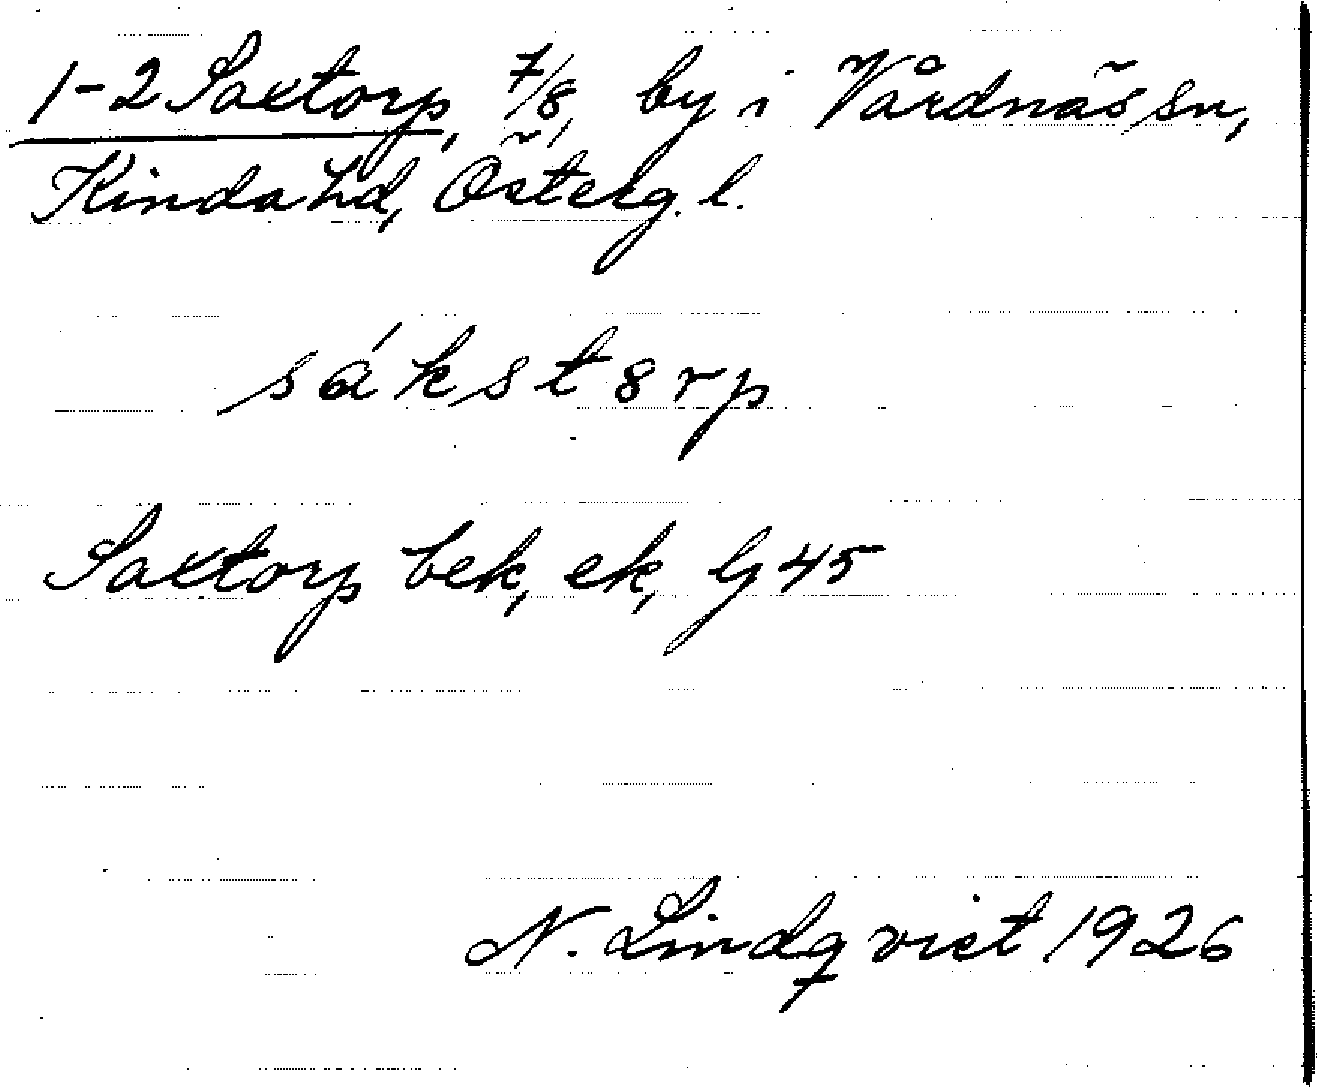 1-2 Saxtorp, 7/8, by i Vårdnäs sn,
Kinda hd, Österg. l.
sákst8rp
Saxtorp bek, ek, Gj 45
N. Lindqvist 1926